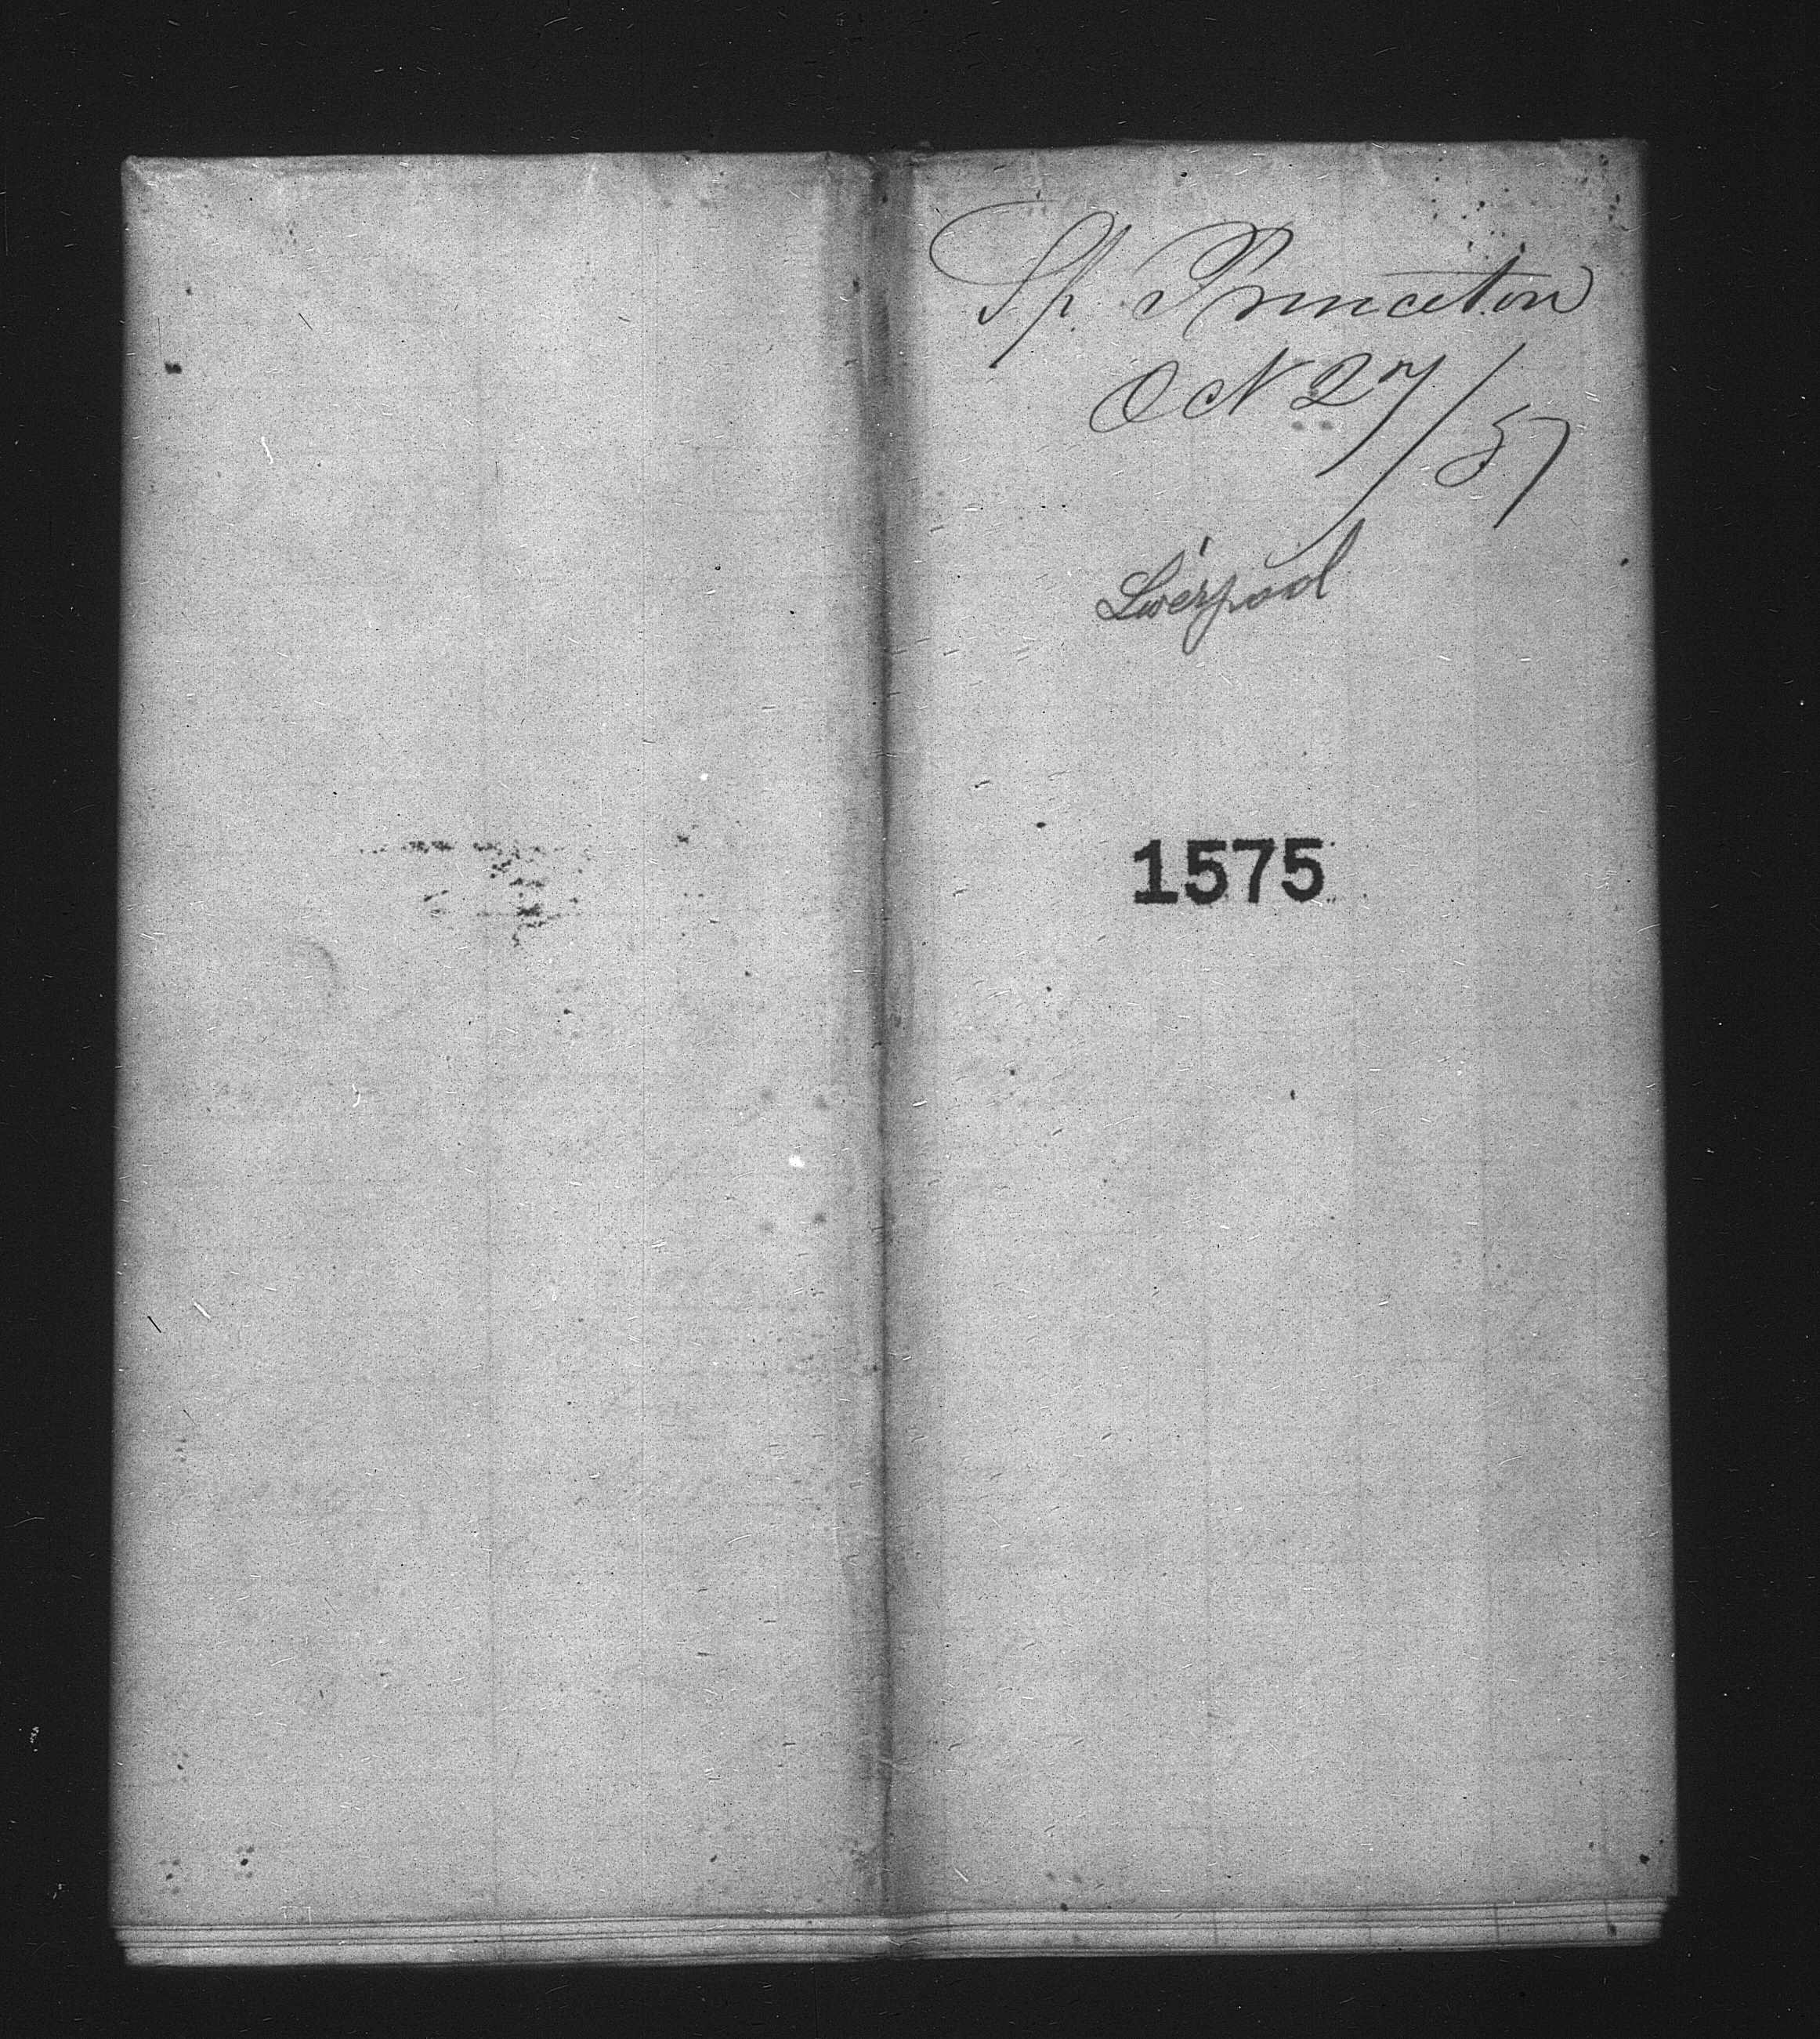 Sh. Princeton
Oct 27/57
Liverpool
1575